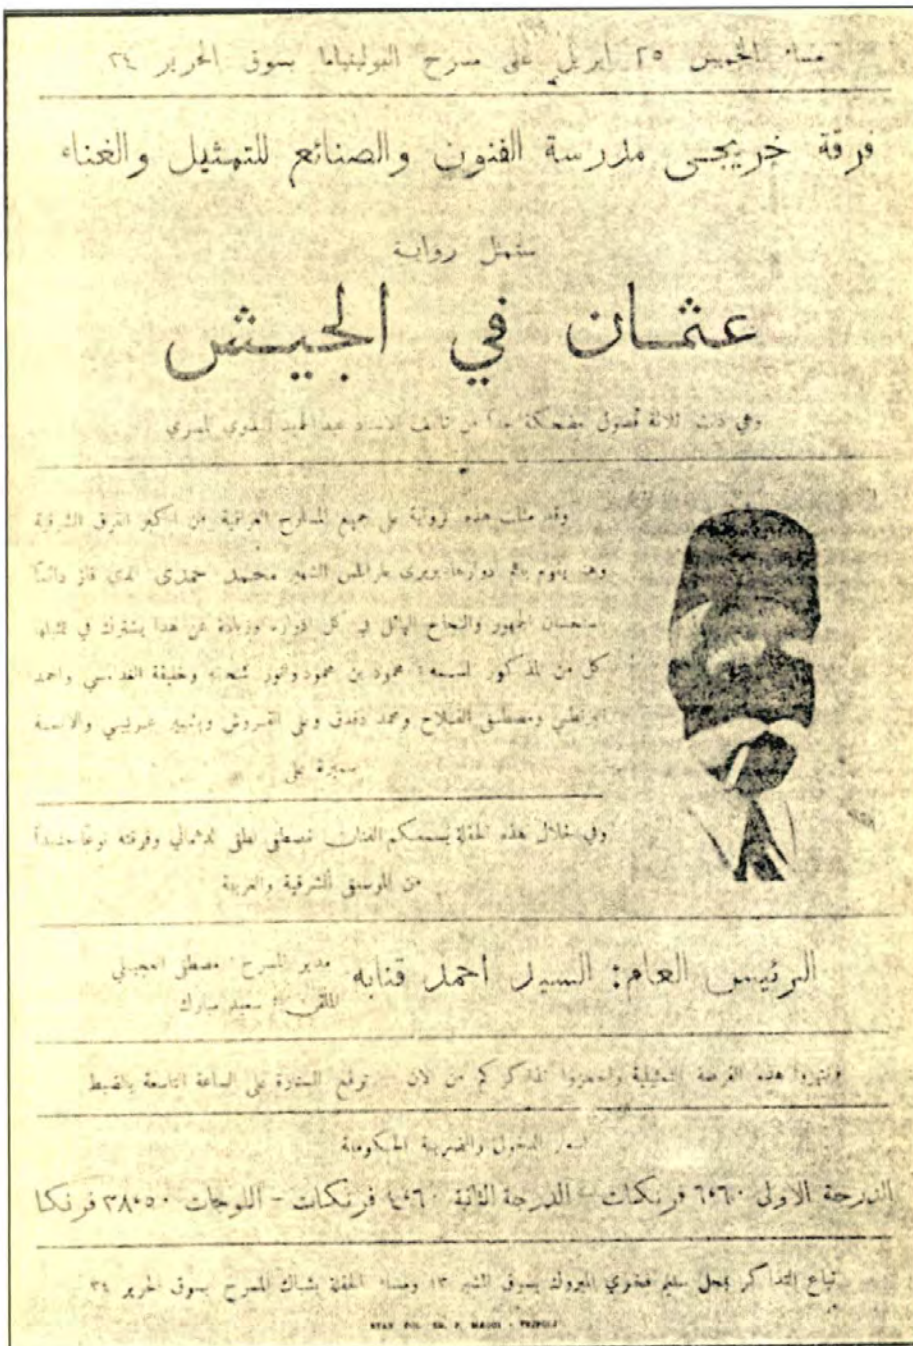 مساء الخميس ٢٥ ابريل على مسرح البوليتياما بسوق الحرير ٢٤
فرقة خريجى مدرسة الفنون والصنائع للتمثيل والغناء
ستمثل رواية
عثمان في الجيش
وهي ذات ثلاثة فصول مضحكة جداً من تأليف الاستاذ عبد الحميد المصري
وقد مثلت هذه الرواية على جميع المسارح العراقية من اكبر الفرق الشرقية
وهنا يقوم باهم ادوارها بربرى طرابلس الشهير محمد حمدى الذي فاز دائماً
باستحسان الجمهور والنجاح الهائل في كل ادواره وزيادة عن هذا يشترك في تمثيلها
كل من المذكور اسمه: محمود بن محمود وانور وخليفة القدسي واحمد
ومصطفى الفلاح ومحمد دقدق وعلى القروش وبشير عريبي والآنسة
سميرة على
وفي خلال هذه الحفلة يسمعكم الفنان مصطفى وفرقته نوعاً جديداً
من الموسيقى الشرقية والعربية
الرئيس العام: السيد احمد قنابه
مدير المسرح: مصطفى العجيلي
الملقن: سعيد مبارك
وانتهزوا هذه الفرصة التمثيلية واحجزوا تذاكركم من الان - ترفع الستارة على الساعة التاسعة بالضبط
اسعار الدخول والضريبة الحكومية
الدرجة الاولى ٦٠،٦ فرنكات - الدرجة الثانية ٦٠،٤ فرنكات - اللوجات ٣٨،٥٠ فرنكا
تباع التذاكر بمحل سليم فخري المبروك بسوق المشير ١٣ ومساء الحفلة بشباك المسرح بسوق الحرير ٢٤
MAGGI - TRIPOLI